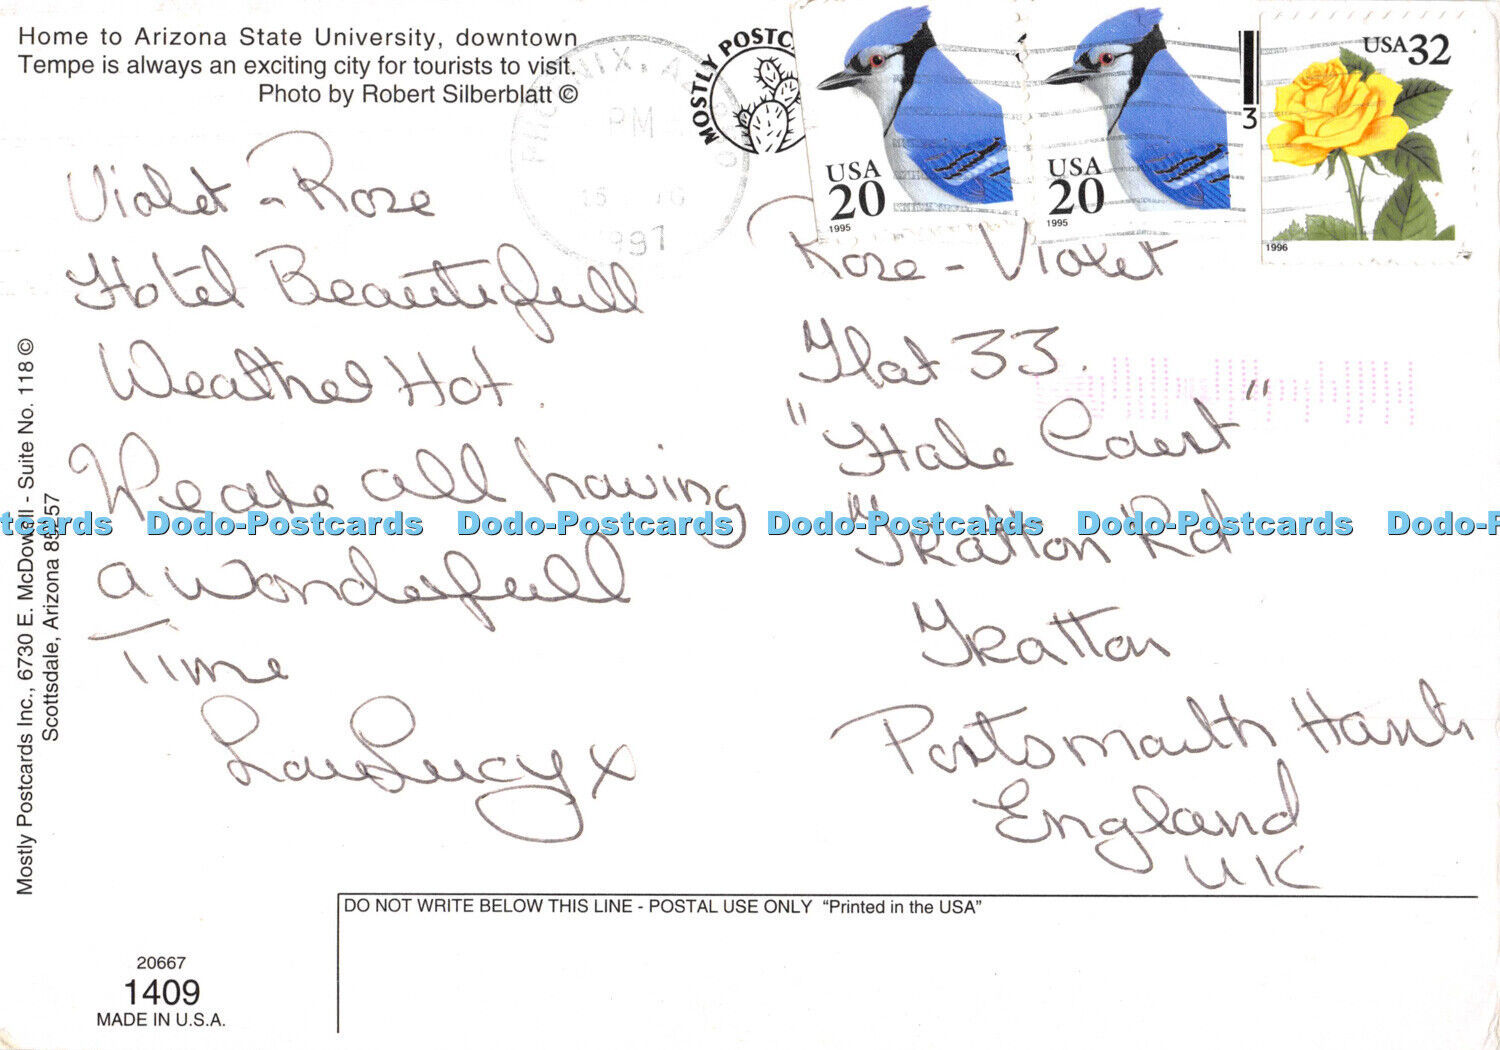 Home to Arizona State University, downtown
Tempe is always an exciting city for tourists to visit.
Photo by Robert Silberblatt ©
MOSTLY POSTC
PM
1997
USA
20
1995
USA
20
1995
3
USA 32
1996
Violet - Rose
Hotel Beautifull
Weather Hot.
We are all having
a wonderfull
Time
Luv Lucy x
Rose - Violet
Flat 33.
"Hale Court"
"Fratton Rd
Fratton
Portsmouth Hants
England
UK
Mostly Postcards Inc., 6730 E. McDowell - Suite No. 118 ©
Scottsdale, Arizona 85257
Dodo-Postcards Dodo-Postcards Dodo-Postcards Dodo-Postcards
DO NOT WRITE BELOW THIS LINE - POSTAL USE ONLY "Printed in the USA"
20667
1409
MADE IN U.S.A.